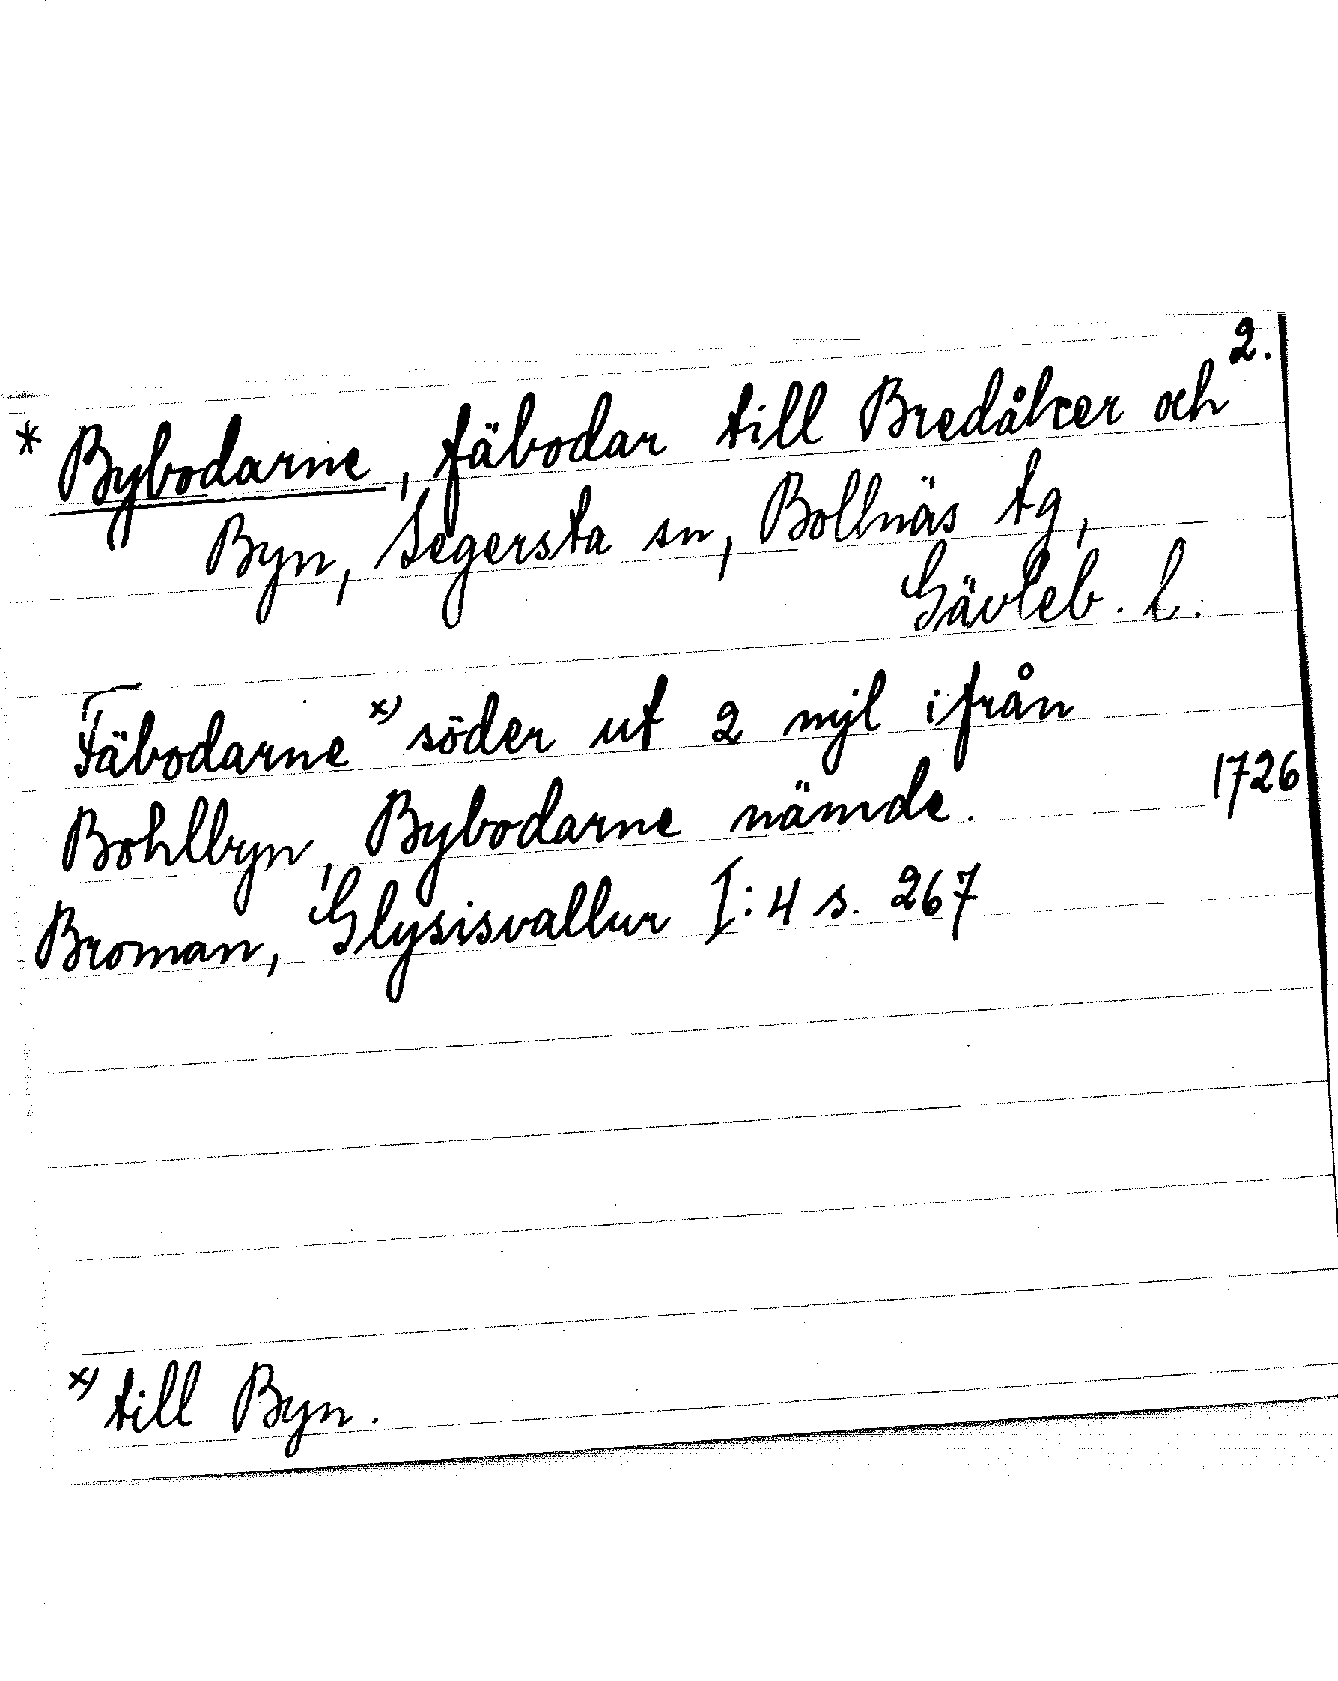 2.
* Bybodarne, fäbodar till Bredåker och
Byn, Segersta sn, Bollnäs tg,
Gävleb. l.
Fäbodarne x) söder ut 2 mijl ifrån
Bohlbyn, Bybodarne nämde. 1726
Broman, Glysisvallur I:4 s. 267
x) till Byn.